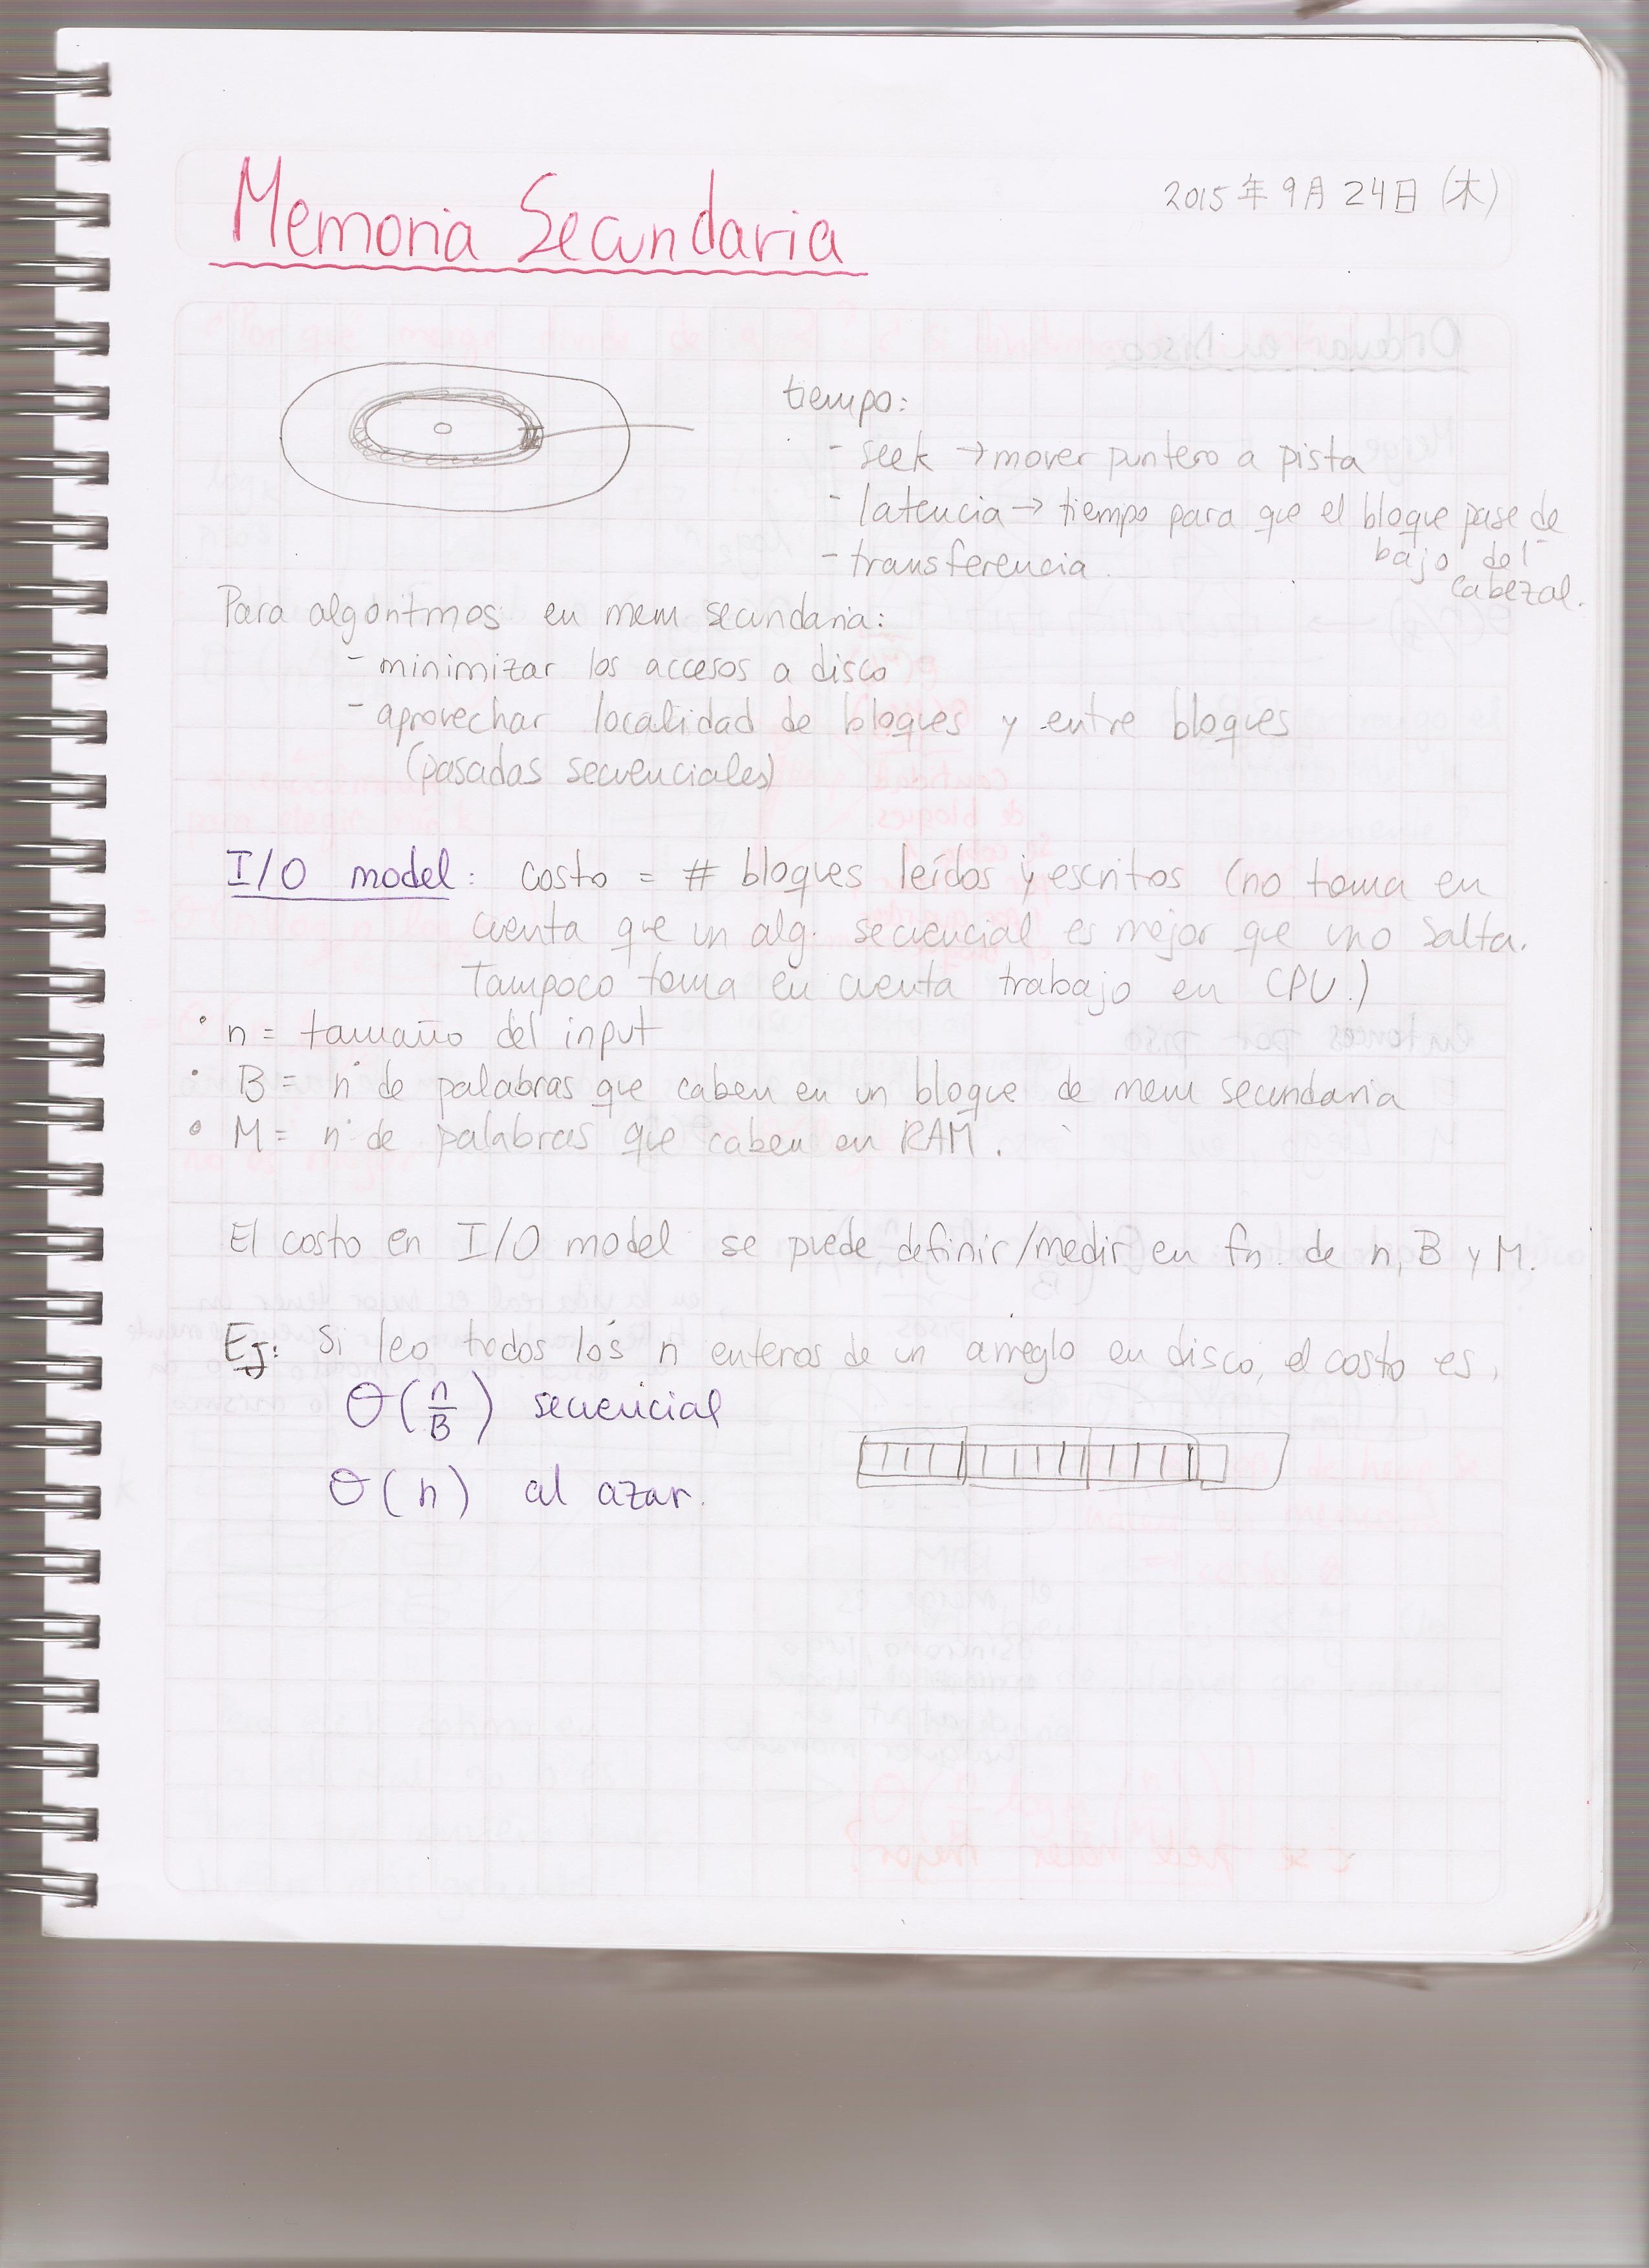 Memoria Secundaria
2015年9月24日 (木)
tiempo:
- seek → mover puntero a pista
- latencia → tiempo para que el bloque pase de
bajo del
cabezal.
- transferencia
Para algoritmos en mem secundaria:
- minimizar los accesos a disco
- aprovechar localidad de bloques y entre bloques
(pasadas secuenciales)
I/O model: costo = # bloques leídos y escritos (no toma en
cuenta que un alg. secuencial es mejor que uno salta.
Tampoco toma en cuenta trabajo en CPU.)
• n = tamaño del input
• B = n° de palabras que caben en un bloque de mem secundaria
• M = n° de palabras que caben en RAM.
El costo en I/O model se puede definir/medir en fn. de n, B y M.
Ej: Si leo todos los n enteros de un arreglo en disco, el costo es,
Θ(n/B) secuencial
Θ(n) al azar.